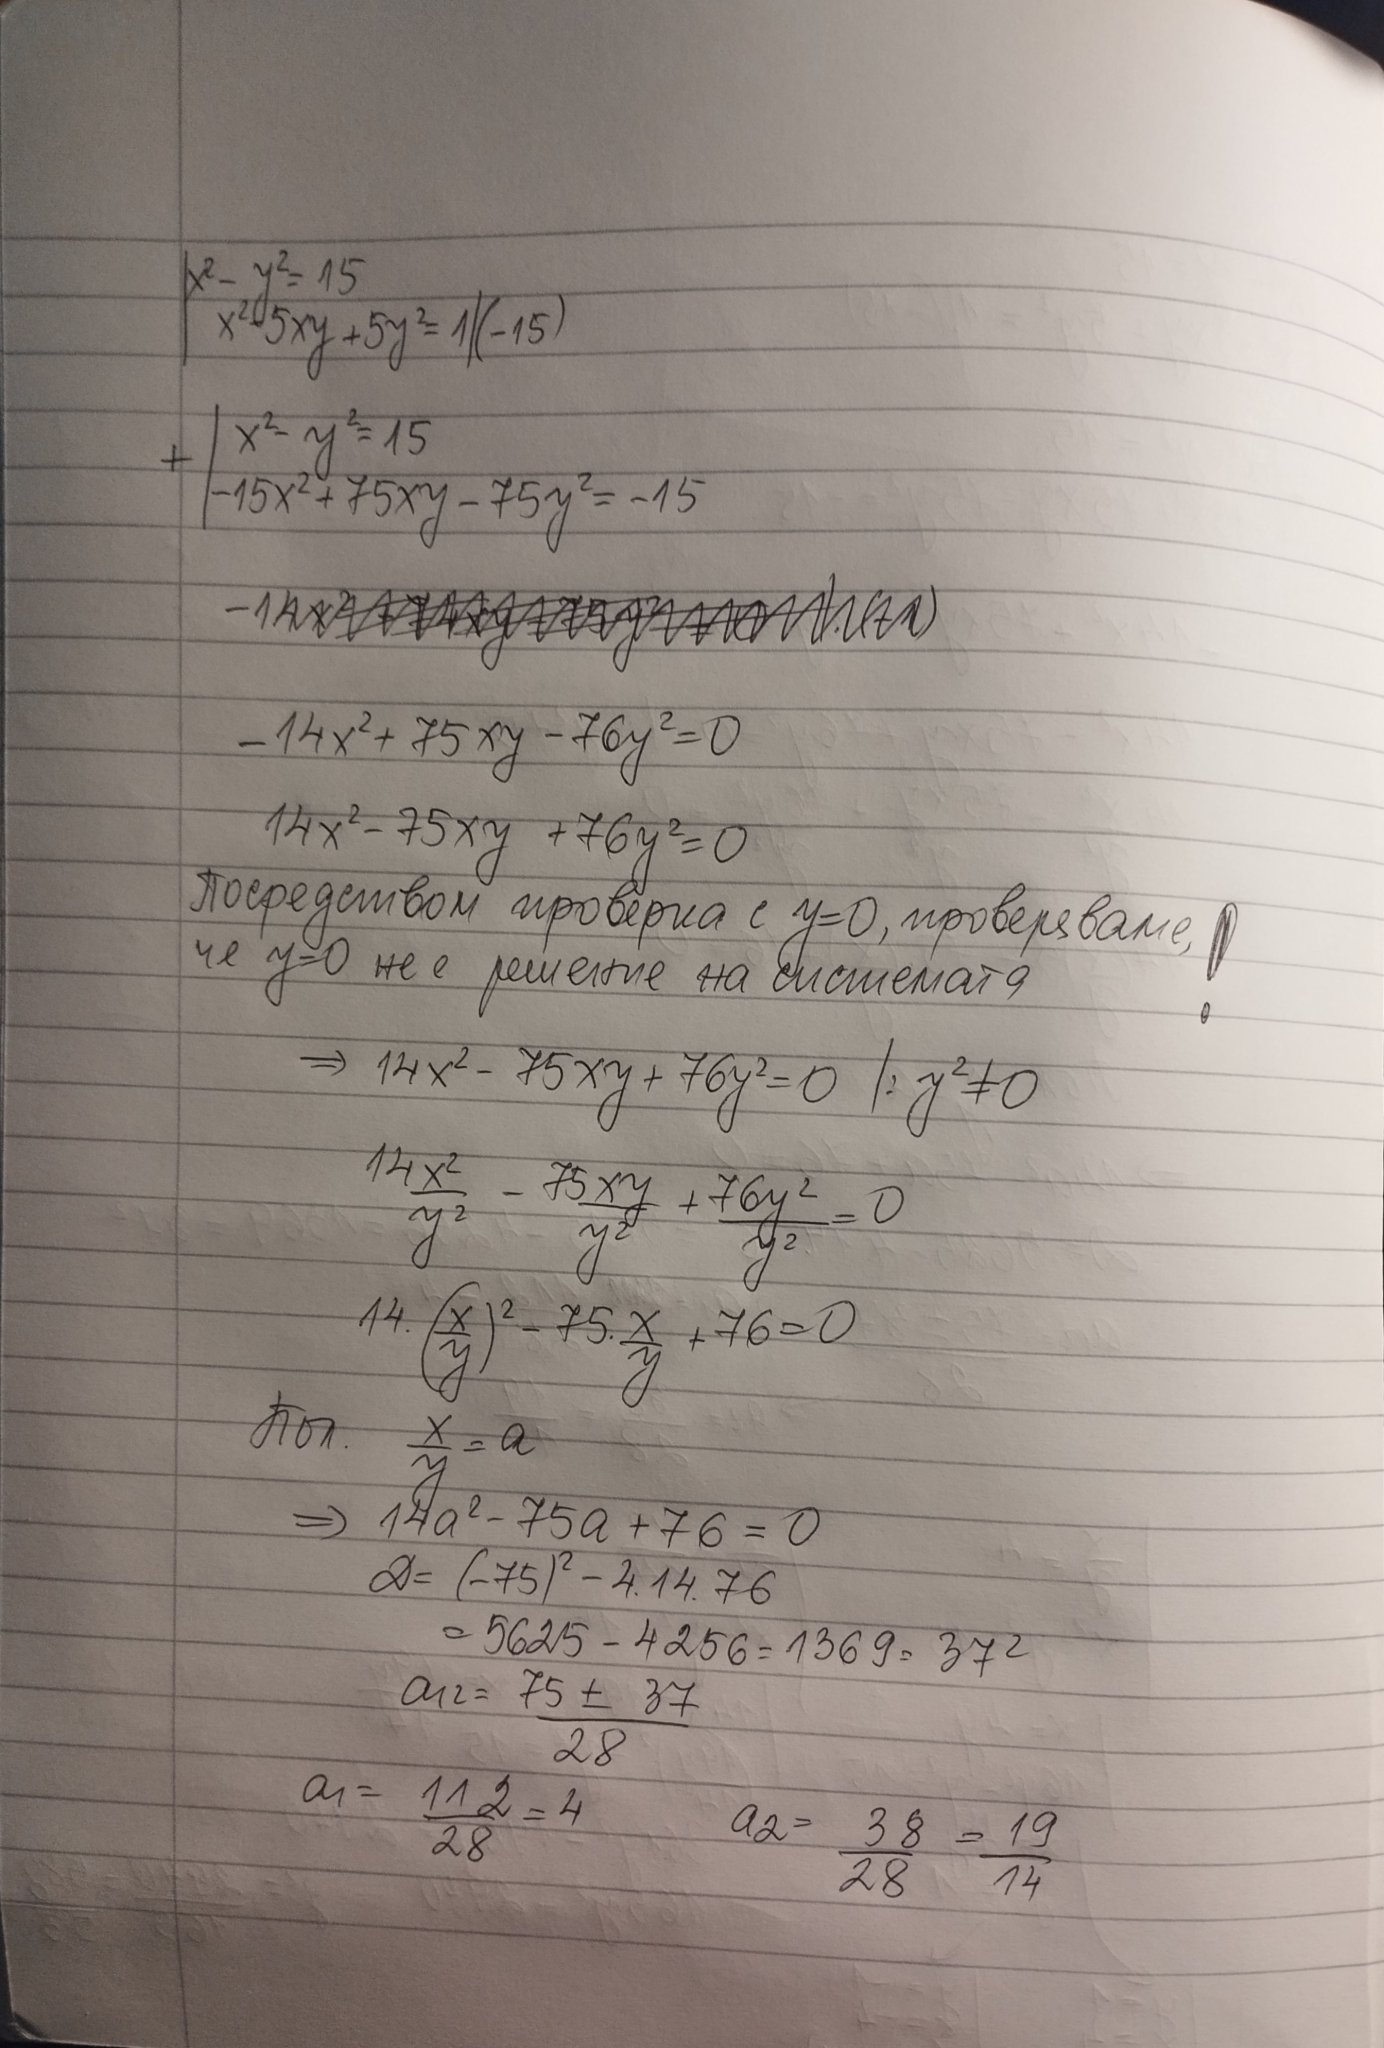 x² - y² = 15
x² - 5xy + 5y² = 1 |(-15)
+ | x² - y² = 15
-15x² + 75xy - 75y² = -15
-14x² + 75xy - 76y² = 0
14x² - 75xy + 76y² = 0
Посредством проверка с y=0, проверяваме, !
че y=0 не е решение на системата
⇒ 14x² - 75xy + 76y² = 0 |: y² ≠ 0
14x²/y² - 75xy/y² + 76y²/y² = 0
14.(x/y)² - 75.x/y + 76 = 0
Пол. x/y = a
⇒ 14a² - 75a + 76 = 0
D = (-75)² - 4.14.76
= 5625 - 4256 = 1369 = 37²
a₁₂ = (75 ± 37)/28
a₁ = 112/28 = 4 a₂ = 38/28 = 19/14